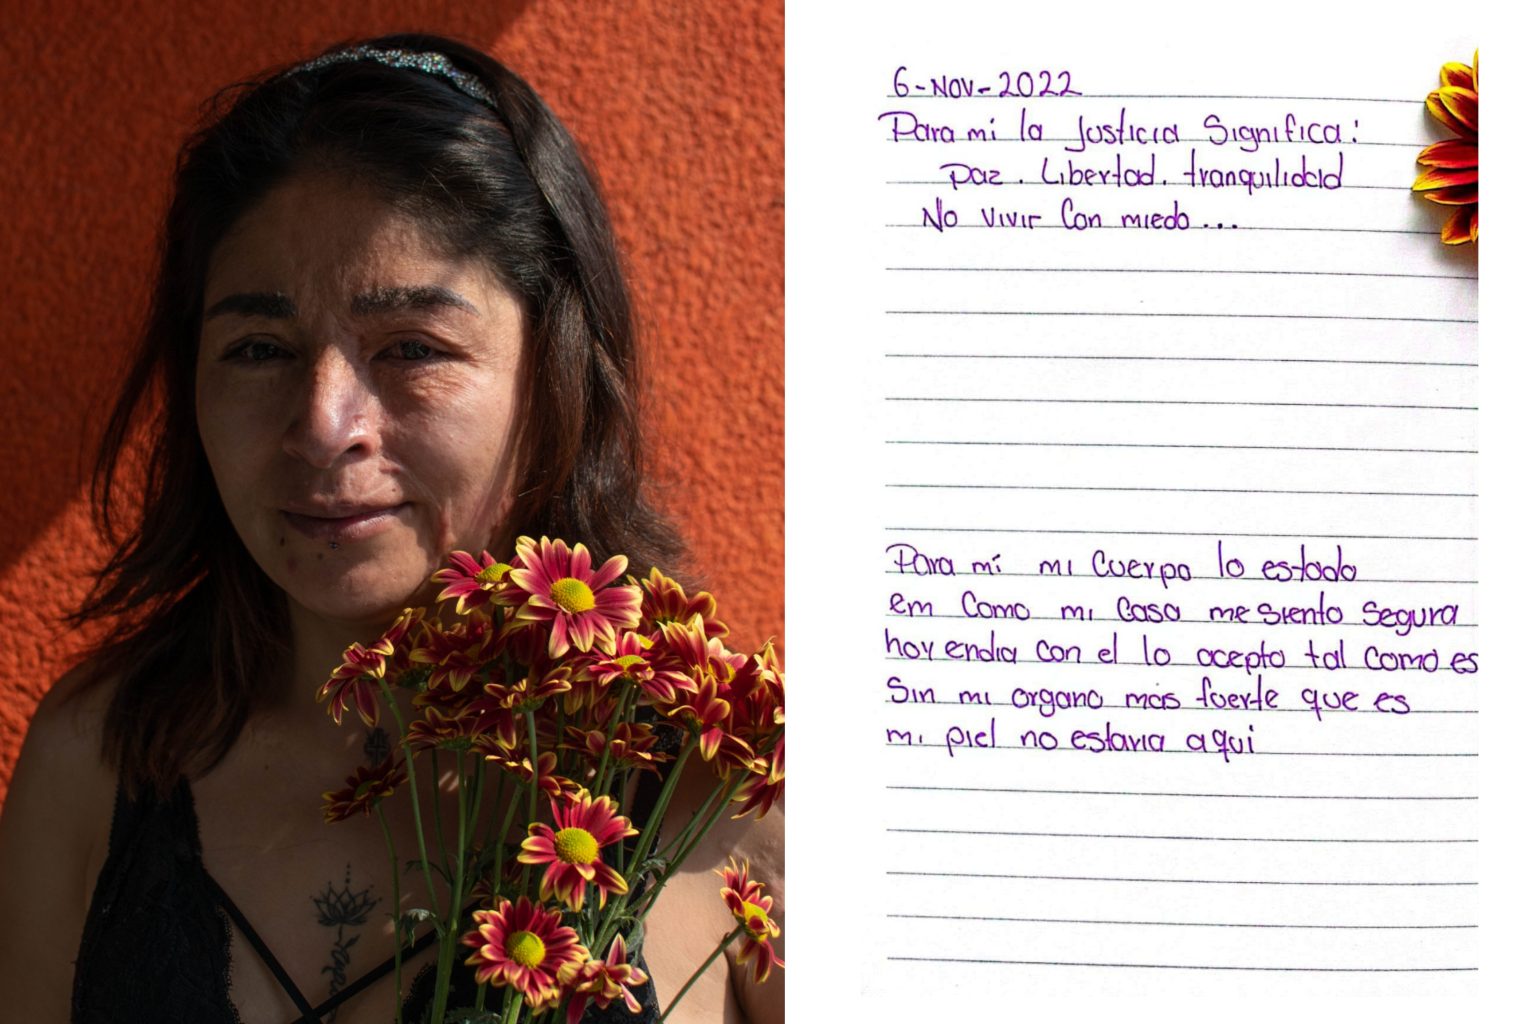 6-Nov-2022
Para mi la Justicia Significa:
Paz. Libertad. tranquilidad
No vivir Con miedo...
Para mí mi Cuerpo lo estado
em Como mi Casa me siento Segura
hoy endia con el lo acepto tal Como es
Sin mi organo mas fuerte que es
mi piel no estaria aqui